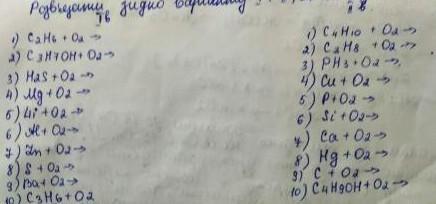 Розвʼязати згідно варіанту
Iв
1) C2H6 + O2 →
2) C3H7OH + O2 →
3) H2S + O2 →
4) Mg + O2 →
5) Li + O2 →
6) Al + O2 →
7) Zn + O2 →
8) S + O2 →
9) Ba + O2 →
10) C3H6 + O2
II в.
1) C4H10 + O2 →
2) C3H8 + O2 →
3) PH3 + O2 →
4) Cu + O2 →
5) P + O2 →
6) Si + O2 →
7) Ca + O2 →
8) Hg + O2 →
9) C + O2 →
10) C4H9OH + O2 →